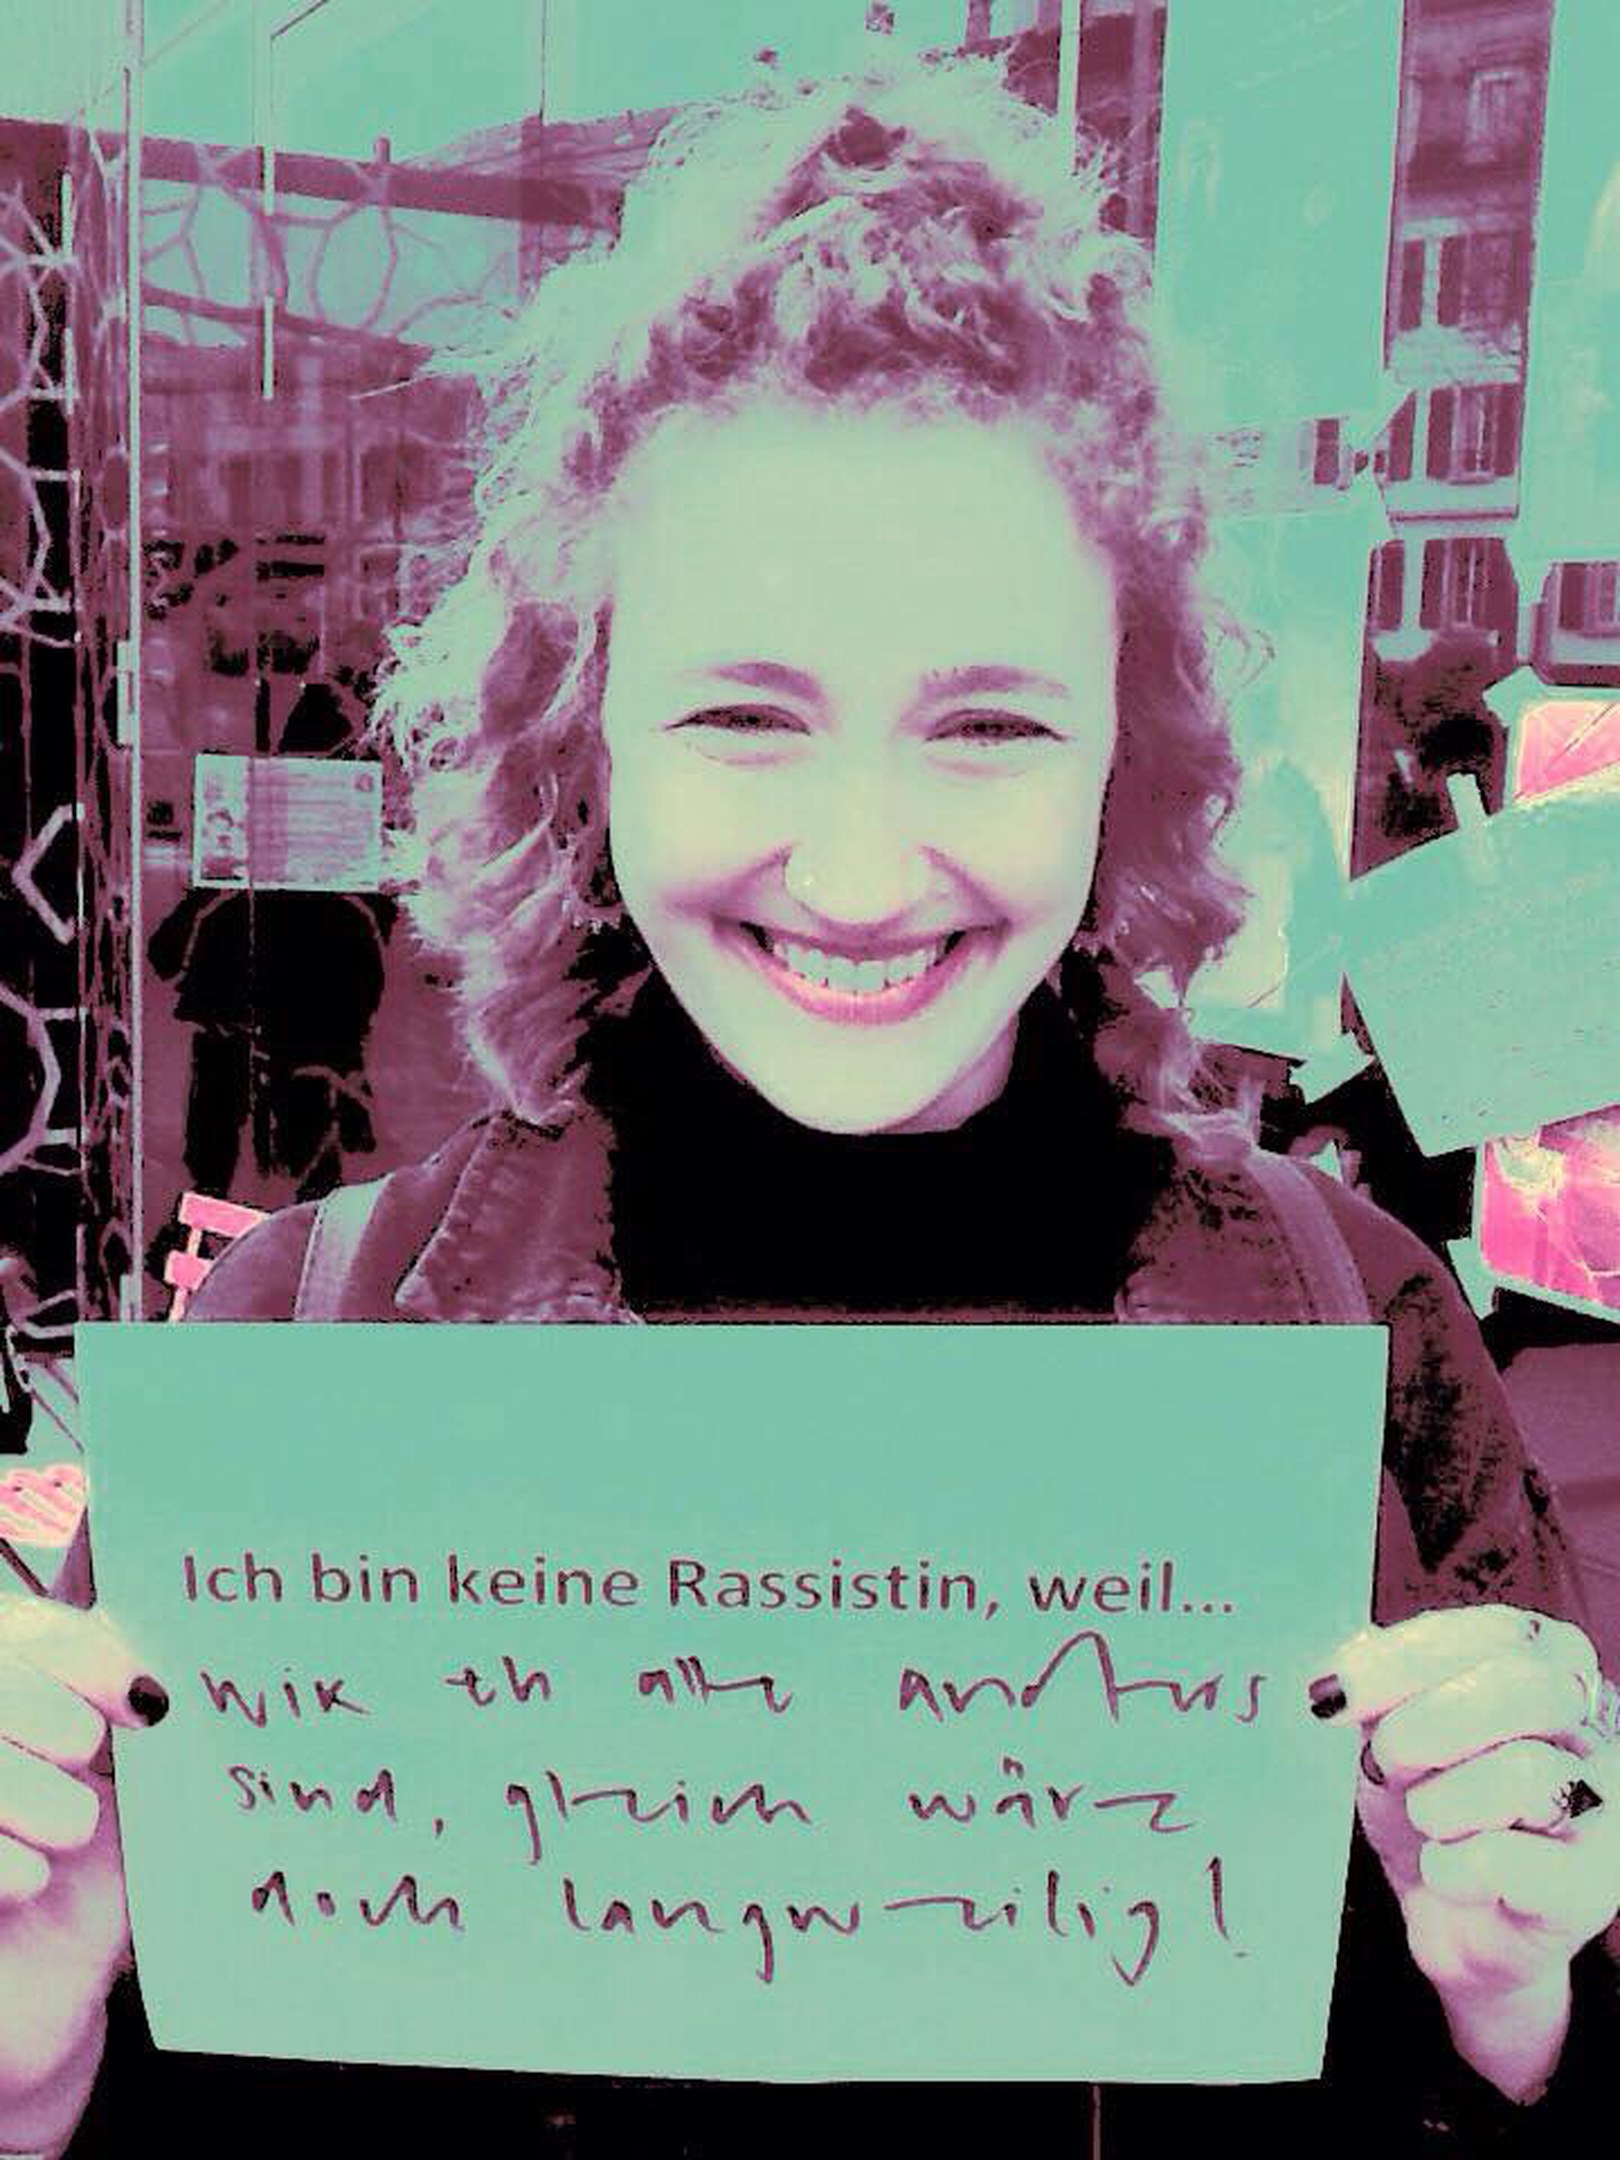 Ich bin keine Rassistin, weil...
wir eh alle anders
sind, gleich wäre
doch langweilig!